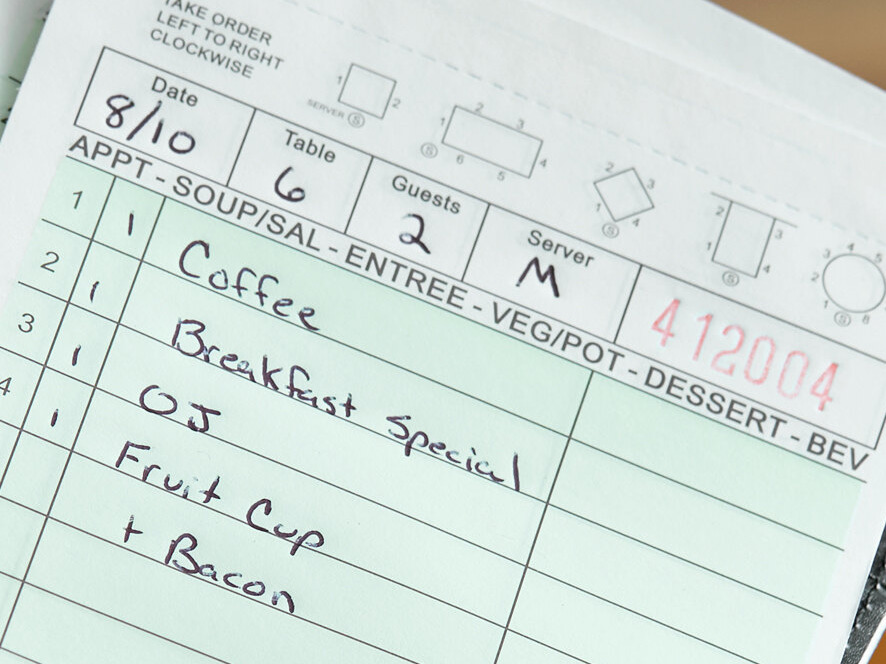 TAKE ORDER
LEFT TO RIGHT
CLOCKWISE
1 2 SERVER S
1 2 3 4 5 6 S
1 2 3 4 S
1 2 3 4 S
1 2 3 4 5 8 S
Date Table Guests Server
8/10 6 2 M 412004
APPT - SOUP/SAL - ENTREE - VEG/POT - DESSERT - BEV
1 1 Coffee
2 1 Breakfast Special
3 1 OJ
4 1 Fruit Cup
+ Bacon